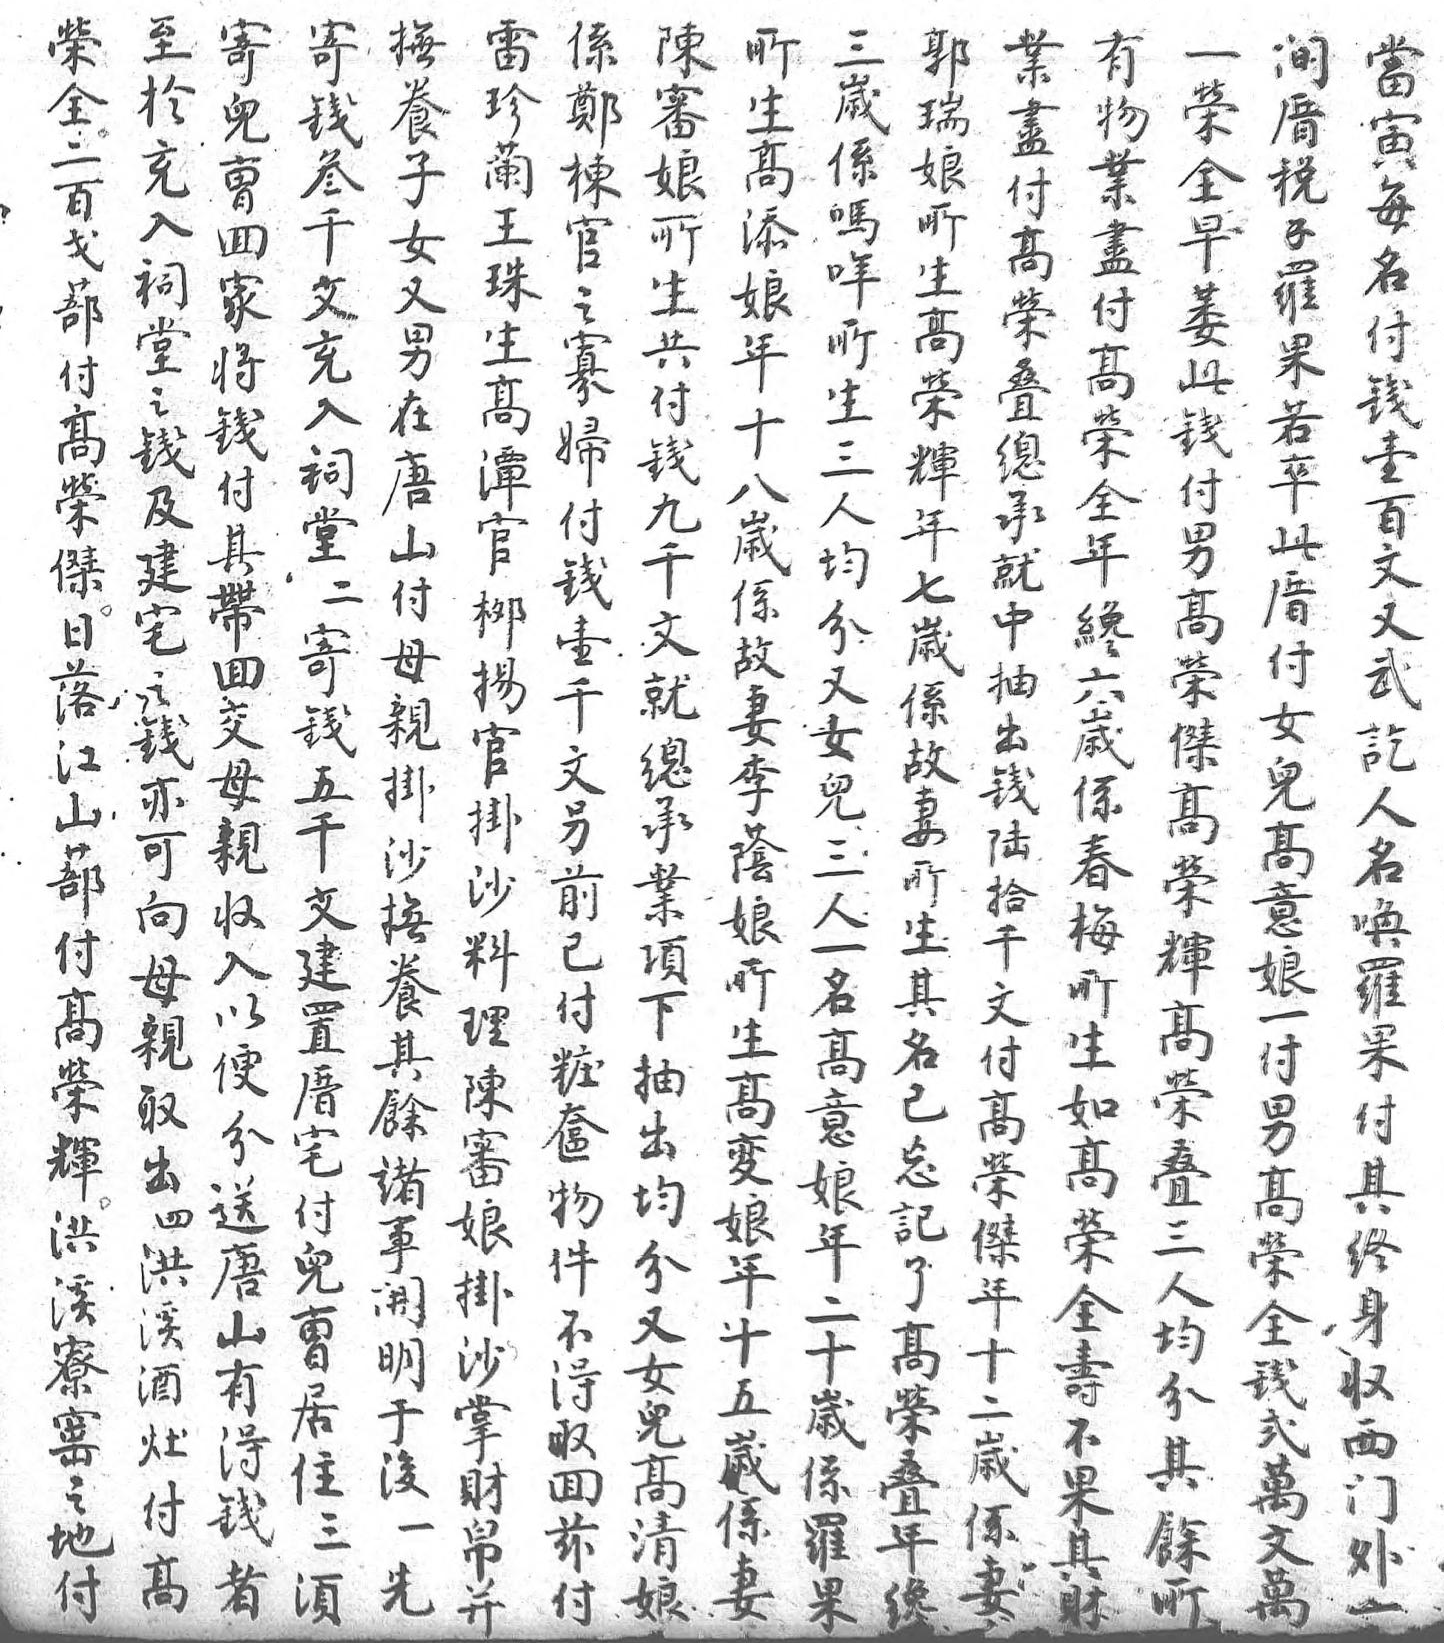 當寅每名付錢壹百文又武訖人名喚羅果付其終身收西门外一
间厝税子羅果若卒此厝付女兒髙意娘一付男髙榮全錢弍萬文萬
一榮全早萎此錢付男髙榮傑髙榮輝髙榮叠三人均分其餘所
有物業盡付髙榮全年纔六歲係春梅所生如髙榮全壽不果其財
業盡付髙榮叠總承就中抽出錢陆拾千文付髙榮傑年十二歲係妻
郭瑞娘所生髙榮輝年七歲係故妻所生其名已忘記了髙榮叠年纔
三歲係嗎哖所生三人均分又女兒三人一名髙意娘年二十歲係羅果
所生髙添娘年十八歲係故妻李蔭娘所生髙変娘年十五歲係妻
陳審娘所生共付錢九千文就總承業項下抽出均分又女兒髙清娘
係鄭棟官之寡婦付錢壹千文另前已付粧奩物件不得取回茲付
雷珍蘭王珠生髙潭官栁揚官掛沙料理陳審娘掛沙掌財帛并
撫養子女又男在唐山付母親掛沙撫養其餘諸事開明于後一先
寄錢叁千文充入祠堂二寄錢五千文建置厝宅付兒曹居住三須
寄兒曹回家将錢付其帶回交母親收入以便分送唐山有得錢者
至扵充入祠堂之錢及建宅之錢亦可向母親取出四洪溪酒灶付髙
榮全二百戈蔀付髙榮傑日落江山蔀付髙榮輝洪溪寮窰之地付